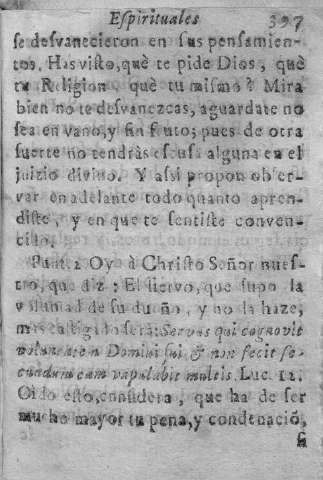 Espirituales 397
se desvanecieron en sus pensamien-
tos. Has visto, què te pide Dios, què
tu Religion, què tu mismo? Mira
bien no te desvanezcas, aguardate no
sea en vano, y sin fruto; pues de otra
suerte no tendràs escusa alguna en el
juizio divino. Y assi propon obser-
var en adelante todo quanto apren-
diste, y en que te sentiste conven-
cido.
Punt. 2 Oye à Christo Señor nues-
tro, que diz: El siervo, que supo la
voluntad de su dueño, y no la haze,
mas castigado serà: Servus qui cognovit
voluntatem Domini sui, & non fecit se-
cundum eam vapulabit multis. Luc. 12.
Oido esto, considera, que ha de ser
mucho mayor tu pena, y condenaciõ,